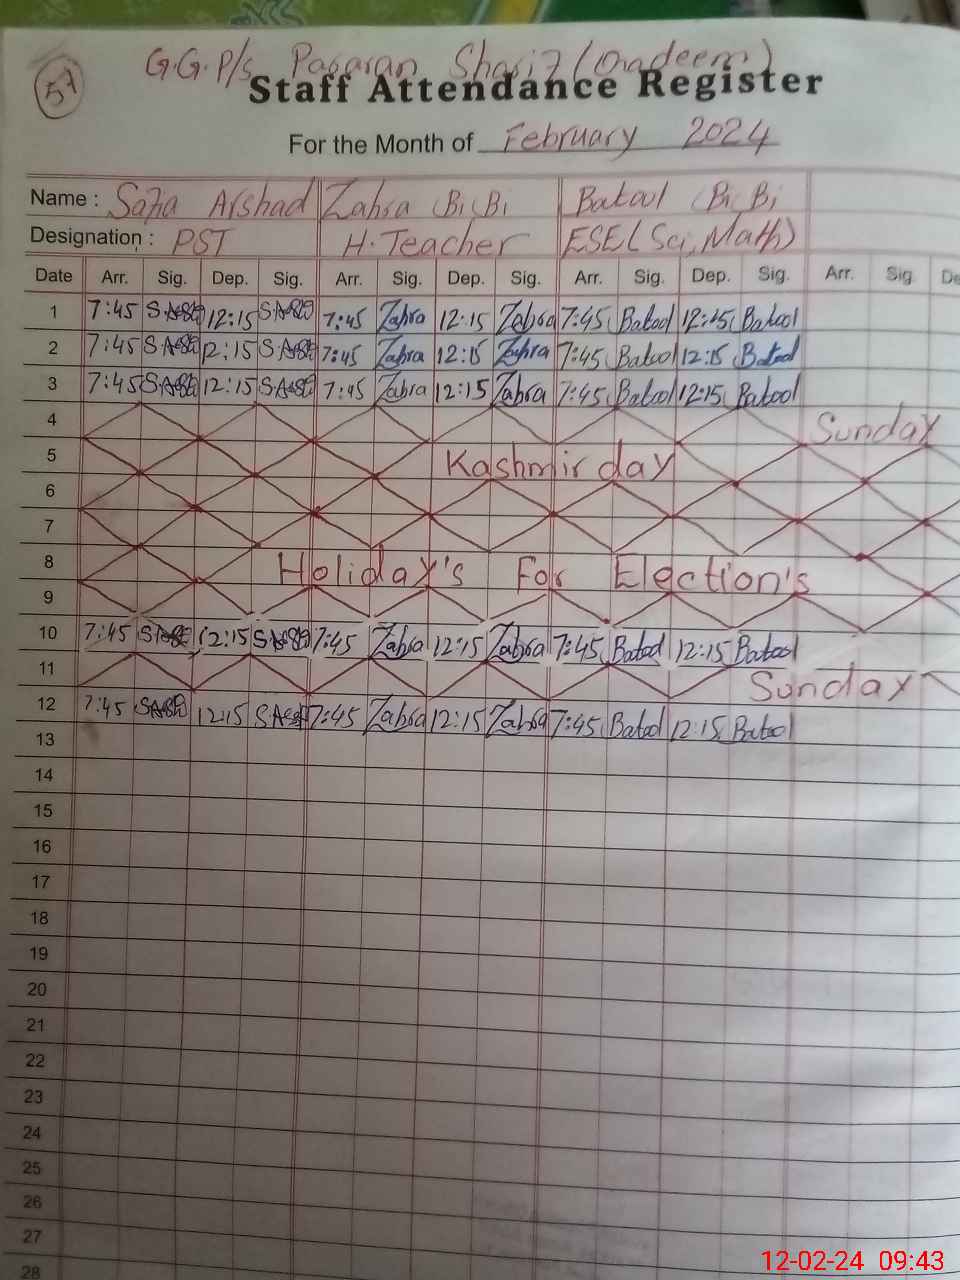 57
G.G.P/s Pagaran Sharif (Qadeem)
Staff Attendance Register
For the Month of February 2024
Name : Safia Arshad Zahra Bi Bi Batool Bi Bi
Designation : PST H. Teacher ESE (Sci, Math)
Date Arr. Sig. Dep. Sig. Arr. Sig. Dep. Sig. Arr. Sig. Dep. Sig. Arr. Sig. De
1 7:45 12:15 7:45 Zahra 12:15 Zahra 7:45 Batool 12:15 Batool
2 7:45 12:15 7:45 Zahra 12:15 Zahra 7:45 Batool 12:15 Batool
3 7:45 12:15 7:45 Zahra 12:15 Zahra 7:45 Batool 12:15 Batool
4 Sunday
5 Kashmir day
6
7
8 Holiday's For Election's
9
10 7:45 12:15 7:45 Zahra 12:15 Zahra 7:45 Batool 12:15 Batool
11 Sunday
12 7:45 12:15 7:45 Zahra 12:15 Zahra 7:45 Batool 12:15 Batool
13
14
15
16
17
18
19
20
21
22
23
24
25
26
27
28
12-02-24 09:43